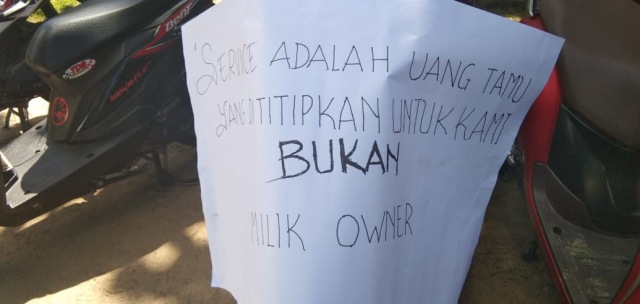 "SERVICE ADALAH UANG TAMU
YANG DITITIPKAN UNTUK KAMI
BUKAN
MILIK OWNER
BeAT